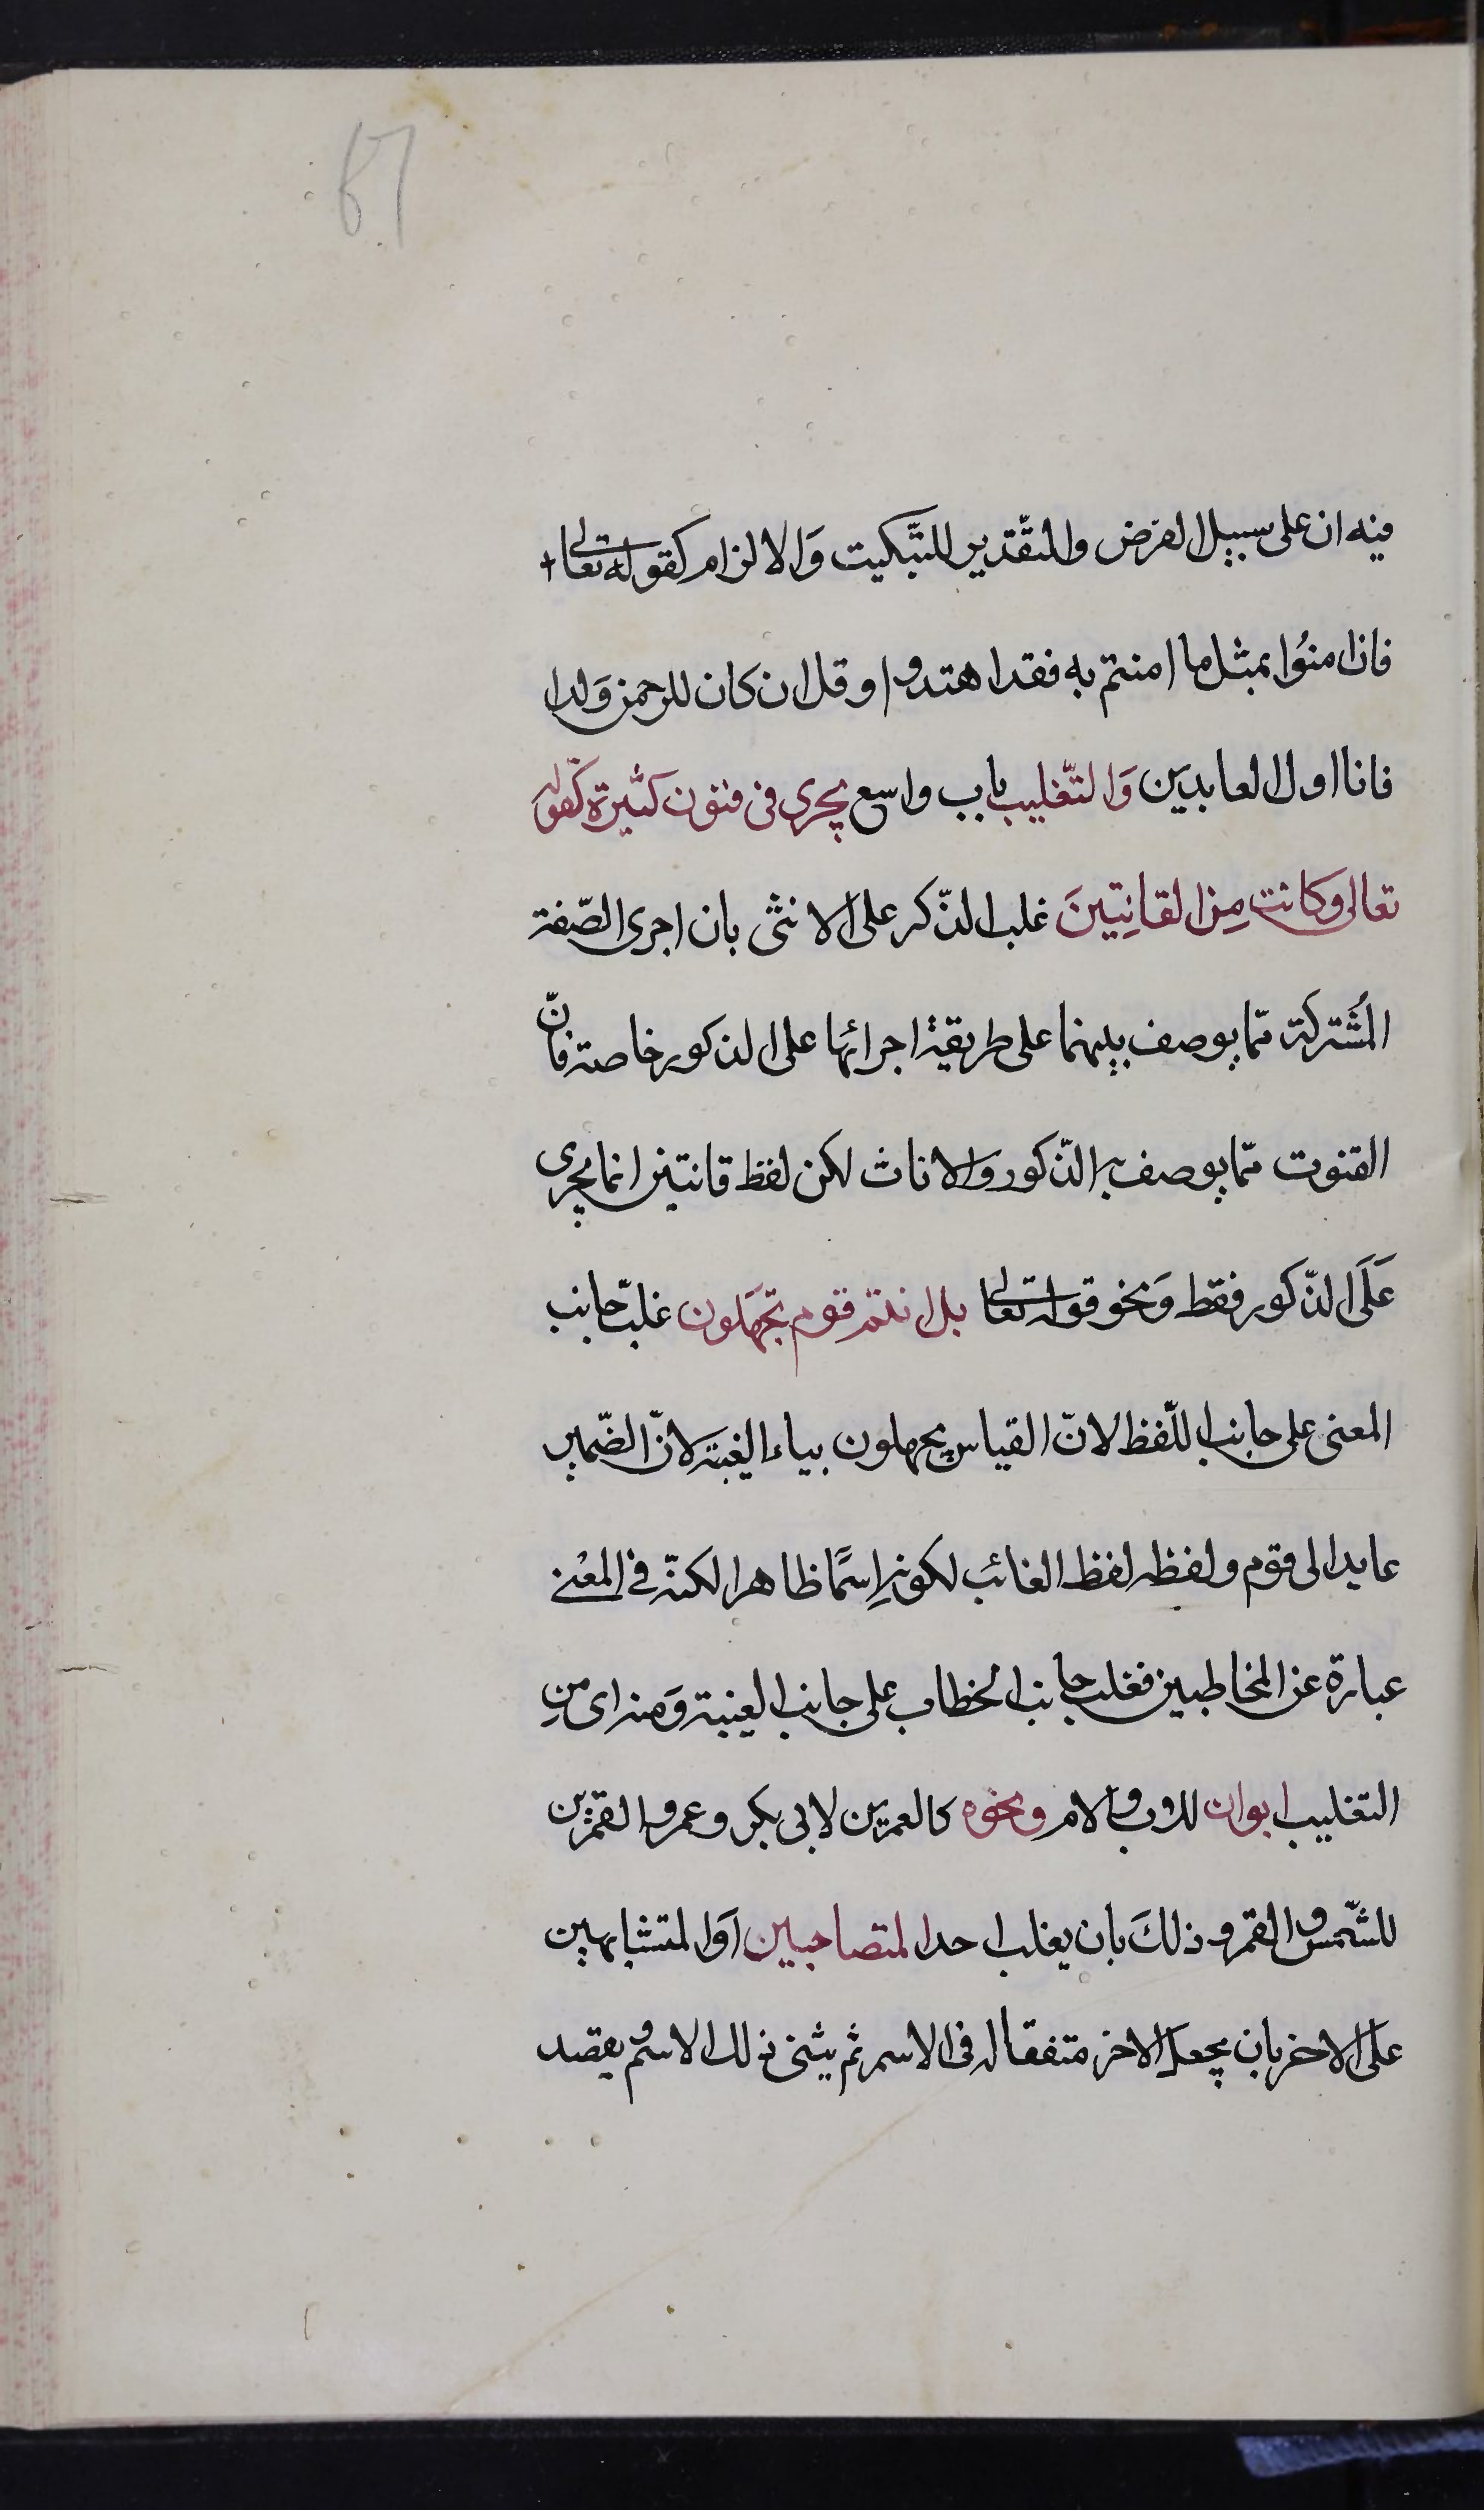 67
فيه ان على سبيل الفرض والتقدير للتبكيت وَالالزام كقوله تعالى
فان امنُوا بمثل ما امنتم به فقد اهتدوا و قل ان كان للرحمن وَلدا
فانا اول العابدين وَالتّغليب باب واسع يجرى فى فنون كثيرة كقوله
تعالى وكانت مِن القانِتينَ غلب الذّكر على الانثى بان اجرى الصّفة
المُشتركة ممّا يوصف بينهما على طريقة اجرائها على الذكور خاصة فانّ
القنوت ممّا يوصف به الذّكور والاناث لكن لفظ قانتين انما يجرى
عَلَى الذّكور فقط وَنحو قوله تعالى بل انتم قوم تجهَلون غلّب جانب
المعنى على جانب اللّفظ لانّ القياس يجهلون بياء الغيبة لانّ الضّمير
عايد الى قوم ولفظه لفظ الغائب لكونه اِسمًا ظاهرا لكنّه فى المعْنى
عبارة عن المخاطبين فغلب جانب الخطاب على جانب الغيبة وَمنه اى مِن
التغليب ابوان للاب والام ونحوه كالعمرين لابى بكر وعمر والقمرين
للشّمس والقمر وذلكَ بان يغلب احد المتصاحبين اَو المتشابهين
على الاخر بان يجعل الاخر متفقا له فى الاسم ثم يثنى ذلك الاسم ويقصد